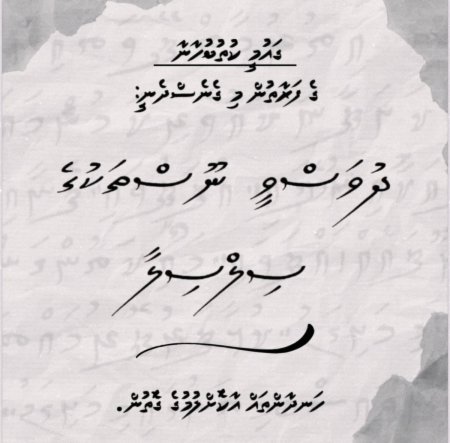 ޤައުމީ ކުތުބުޚާނާ
ގެ ފަރާތުން މި ގެނެސްދެނީ:
ދުވަސްވީ ނޫސްތަކުގެ
ސިލްސިލާ
ހަނދާންތައް އާކޮށްލުމުގެ ގޮތުން.